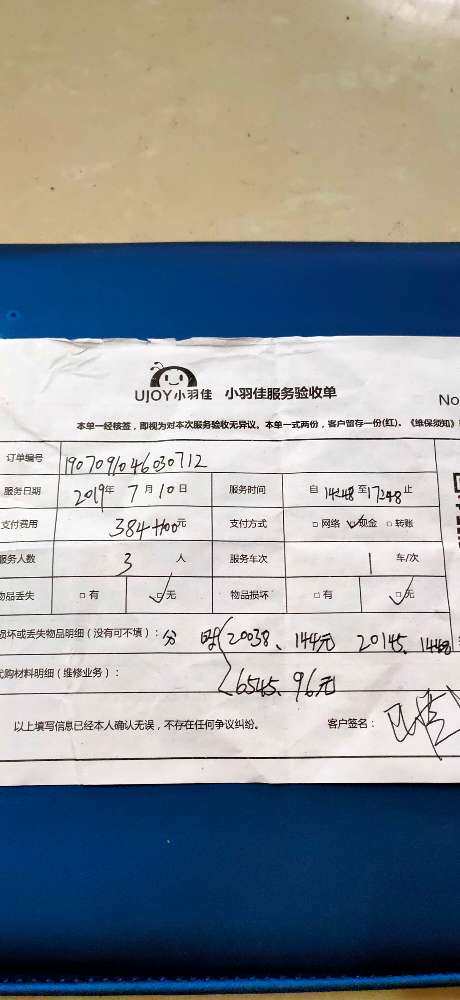 UJOY小羽佳 小羽佳服务验收单
No
本单一经核签，即视为对本次服务验收无异议。本单一式两份，客户留存一份(红)。《维保须知》
订单编号 190709046030712
服务日期 2019年 7月10日 服务时间 自 1448 至 1748 止
支付费用 384+100元 支付方式 □ 网络 ☑现金 □ 转账
服务人数 3 人 服务车次 1 车/次
物品丢失 □ 有 ☑无 物品损坏 □ 有 ☑无
损坏或丢失物品明细（没有可不填）： 20038、144元 20145、144元
代购材料明细（维修业务）： 6545、96元
以上填写信息已经本人确认无误，不存在任何争议纠纷。 客户签名：